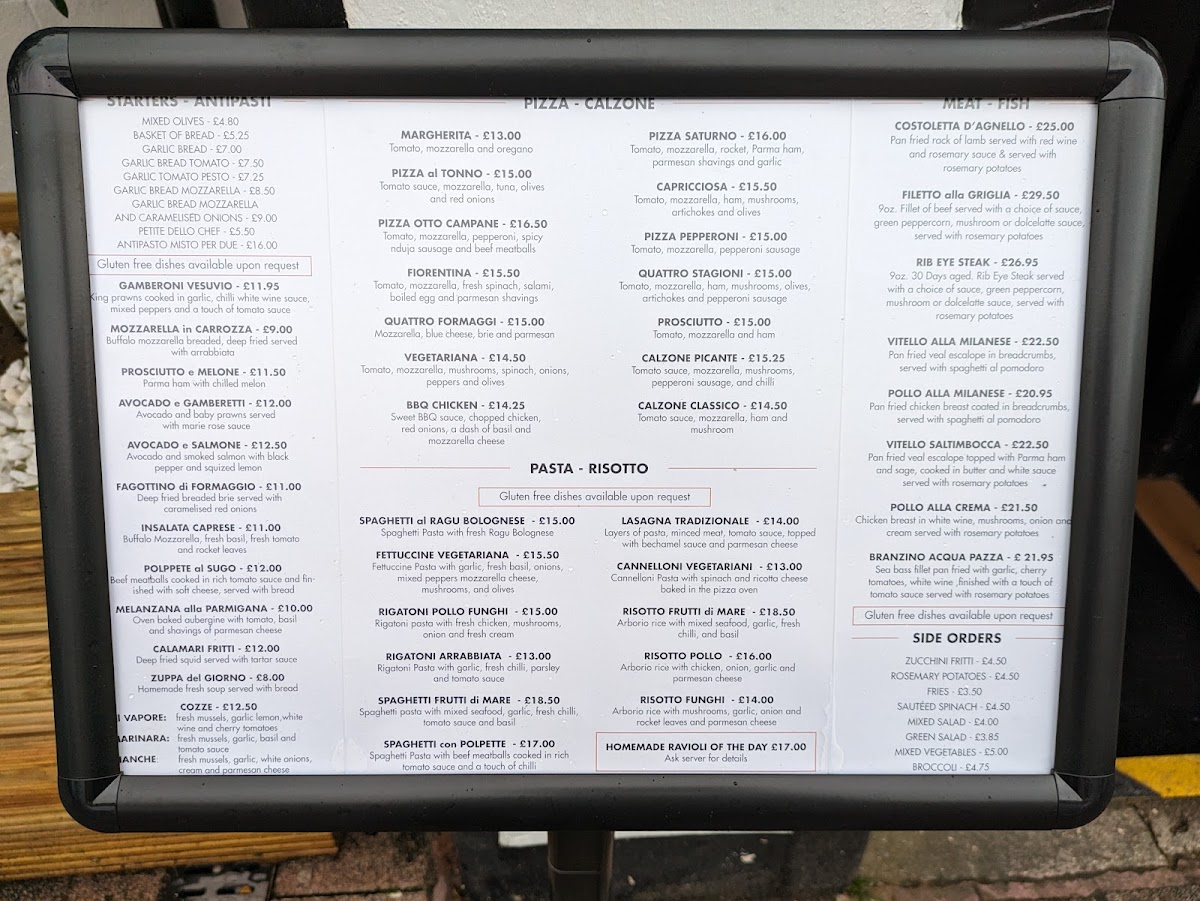 STARTERS - ANTIPASTI
MIXED OLIVES - £4.80
BASKET OF BREAD - £5.25
GARLIC BREAD - £7.00
GARLIC BREAD TOMATO - £7.50
GARLIC TOMATO PESTO - £7.25
GARLIC BREAD MOZZARELLA - £8.50
GARLIC BREAD MOZZARELLA
AND CARAMELISED ONIONS - £9.00
PETITE DELLO CHEF - £5.50
ANTIPASTO MISTO PER DUE - £16.00
Gluten free dishes available upon request
GAMBERONI VESUVIO - £11.95
King prawns cooked in garlic, chilli white wine sauce,
mixed peppers and a touch of tomato sauce
MOZZARELLA in CARROZZA - £9.00
Buffalo mozzarella breaded, deep fried served
with arrabbiata
PROSCIUTTO e MELONE - £11.50
Parma ham with chilled melon
AVOCADO e GAMBERETTI - £12.00
Avocado and baby prawns served
with marie rose sauce
AVOCADO e SALMONE - £12.50
Avocado and smoked salmon with black
pepper and squized lemon
FAGOTTINO di FORMAGGIO - £11.00
Deep fried breaded brie served with
caramelised red onions
INSALATA CAPRESE - £11.00
Buffalo Mozzarella, fresh basil, fresh tomato
and rocket leaves
POLPPETE al SUGO - £12.00
Beef meatballs cooked in rich tomato sauce and fin-
ished with soft cheese, served with bread
MELANZANA alla PARMIGANA - £10.00
Oven baked aubergine with tomato, basil
and shavings of parmesan cheese
CALAMARI FRITTI - £12.00
Deep fried squid served with tartar sauce
ZUPPA del GIORNO - £8.00
Homemade fresh soup served with bread
COZZE - £12.50
I VAPORE: fresh mussels, garlic lemon,white
wine and cherry tomatoes
ARINARA: fresh mussels, garlic, basil and
tomato sauce
IANCHE: fresh mussels, garlic, white onions,
cream and parmesan cheese
PIZZA - CALZONE
MARGHERITA - £13.00
Tomato, mozzarella and oregano
PIZZA al TONNO - £15.00
Tomato sauce, mozzarella, tuna, olives
and red onions
PIZZA OTTO CAMPANE - £16.50
Tomato, mozzarella, pepperoni, spicy
nduja sausage and beef meatballs
FIORENTINA - £15.50
Tomato, mozzarella, fresh spinach, salami,
boiled egg and parmesan shavings
QUATTRO FORMAGGI - £15.00
Mozzarella, blue cheese, brie and parmesan
VEGETARIANA - £14.50
Tomato, mozzarella, mushrooms, spinach, onions,
peppers and olives
BBQ CHICKEN - £14.25
Sweet BBQ sauce, chopped chicken,
red onions, a dash of basil and
mozzarella cheese
PIZZA SATURNO - £16.00
Tomato, mozzarella, rocket, Parma ham,
parmesan shavings and garlic
CAPRICCIOSA - £15.50
Tomato, mozzarella, ham, mushrooms,
artichokes and olives
PIZZA PEPPERONI - £15.00
Tomato, mozzarella, pepperoni sausage
QUATTRO STAGIONI - £15.00
Tomato, mozzarella, ham, mushrooms, olives,
artichokes and pepperoni sausage
PROSCIUTTO - £15.00
Tomato, mozzarella and ham
CALZONE PICANTE - £15.25
Tomato sauce, mozzarella, mushrooms,
pepperoni sausage, and chilli
CALZONE CLASSICO - £14.50
Tomato sauce, mozzarella, ham and
mushroom
PASTA - RISOTTO
Gluten free dishes available upon request
SPAGHETTI al RAGU BOLOGNESE - £15.00
Spaghetti Pasta with fresh Ragu Bolognese
FETTUCCINE VEGETARIANA - £15.50
Fettuccine Pasta with garlic, fresh basil, onions,
mixed peppers mozzarella cheese,
mushrooms, and olives
RIGATONI POLLO FUNGHI - £15.00
Rigatoni pasta with fresh chicken, mushrooms,
onion and fresh cream
RIGATONI ARRABBIATA - £13.00
Rigatoni Pasta with garlic, fresh chilli, parsley
and tomato sauce
SPAGHETTI FRUTTI di MARE - £18.50
Spaghetti pasta with mixed seafood, garlic, fresh chilli,
tomato sauce and basil
SPAGHETTI con POLPETTE - £17.00
Spaghetti Pasta with beef meatballs cooked in rich
tomato sauce and a touch of chilli
LASAGNA TRADIZIONALE - £14.00
Layers of pasta, minced meat, tomato sauce, topped
with bechamel sauce and parmesan cheese
CANNELLONI VEGETARIANI - £13.00
Cannelloni Pasta with spinach and ricotta cheese
baked in the pizza oven
RISOTTO FRUTTI di MARE - £18.50
Arborio rice with mixed seafood, garlic, fresh
chilli, and basil
RISOTTO POLLO - £16.00
Arborio rice with chicken, onion, garlic and
parmesan cheese
RISOTTO FUNGHI - £14.00
Arborio rice with mushrooms, garlic, onion and
rocket leaves and parmesan cheese
HOMEMADE RAVIOLI OF THE DAY £17.00
Ask server for details
MEAT - FISH
COSTOLETTA D'AGNELLO - £25.00
Pan fried rack of lamb served with red wine
and rosemary sauce & served with
rosemary potatoes
FILETTO alla GRIGLIA - £29.50
9oz. Fillet of beef served with a choice of sauce,
green peppercorn, mushroom or dolcelatte sauce,
served with rosemary potatoes
RIB EYE STEAK - £26.95
9oz. 30 Days aged, Rib Eye Steak served
with a choice of sauce, green peppercorn,
mushroom or dolcelatte sauce, served with
rosemary potatoes
VITELLO ALLA MILANESE - £22.50
Pan fried veal escalope in breadcrumbs,
served with spaghetti al pomodoro
POLLO ALLA MILANESE - £20.95
Pan fried chicken breast coated in breadcrumbs,
served with spaghetti al pomodoro
VITELLO SALTIMBOCCA - £22.50
Pan fried veal escalope topped with Parma ham
and sage, cooked in butter and white sauce
served with rosemary potatoes
POLLO ALLA CREMA - £21.50
Chicken breast in white wine, mushrooms, onion and
cream served with rosemary potatoes
BRANZINO ACQUA PAZZA - £ 21.95
Sea bass fillet pan fried with garlic, cherry
tomatoes, white wine ,finished with a touch of
tomato sauce served with rosemary potatoes
Gluten free dishes available upon request
SIDE ORDERS
ZUCCHINI FRITTI - £4.50
ROSEMARY POTATOES - £4.50
FRIES - £3.50
SAUTÉED SPINACH - £4.50
MIXED SALAD - £4.00
GREEN SALAD - £3.85
MIXED VEGETABLES - £5.00
BROCCOLI - £4.75